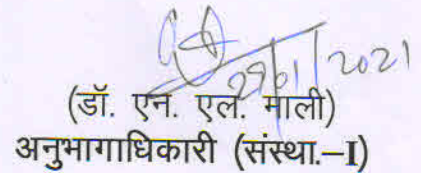 29/01/2021
(डॉ. एन. एल. माली)
अनुभागाधिकारी (संस्था.–I)